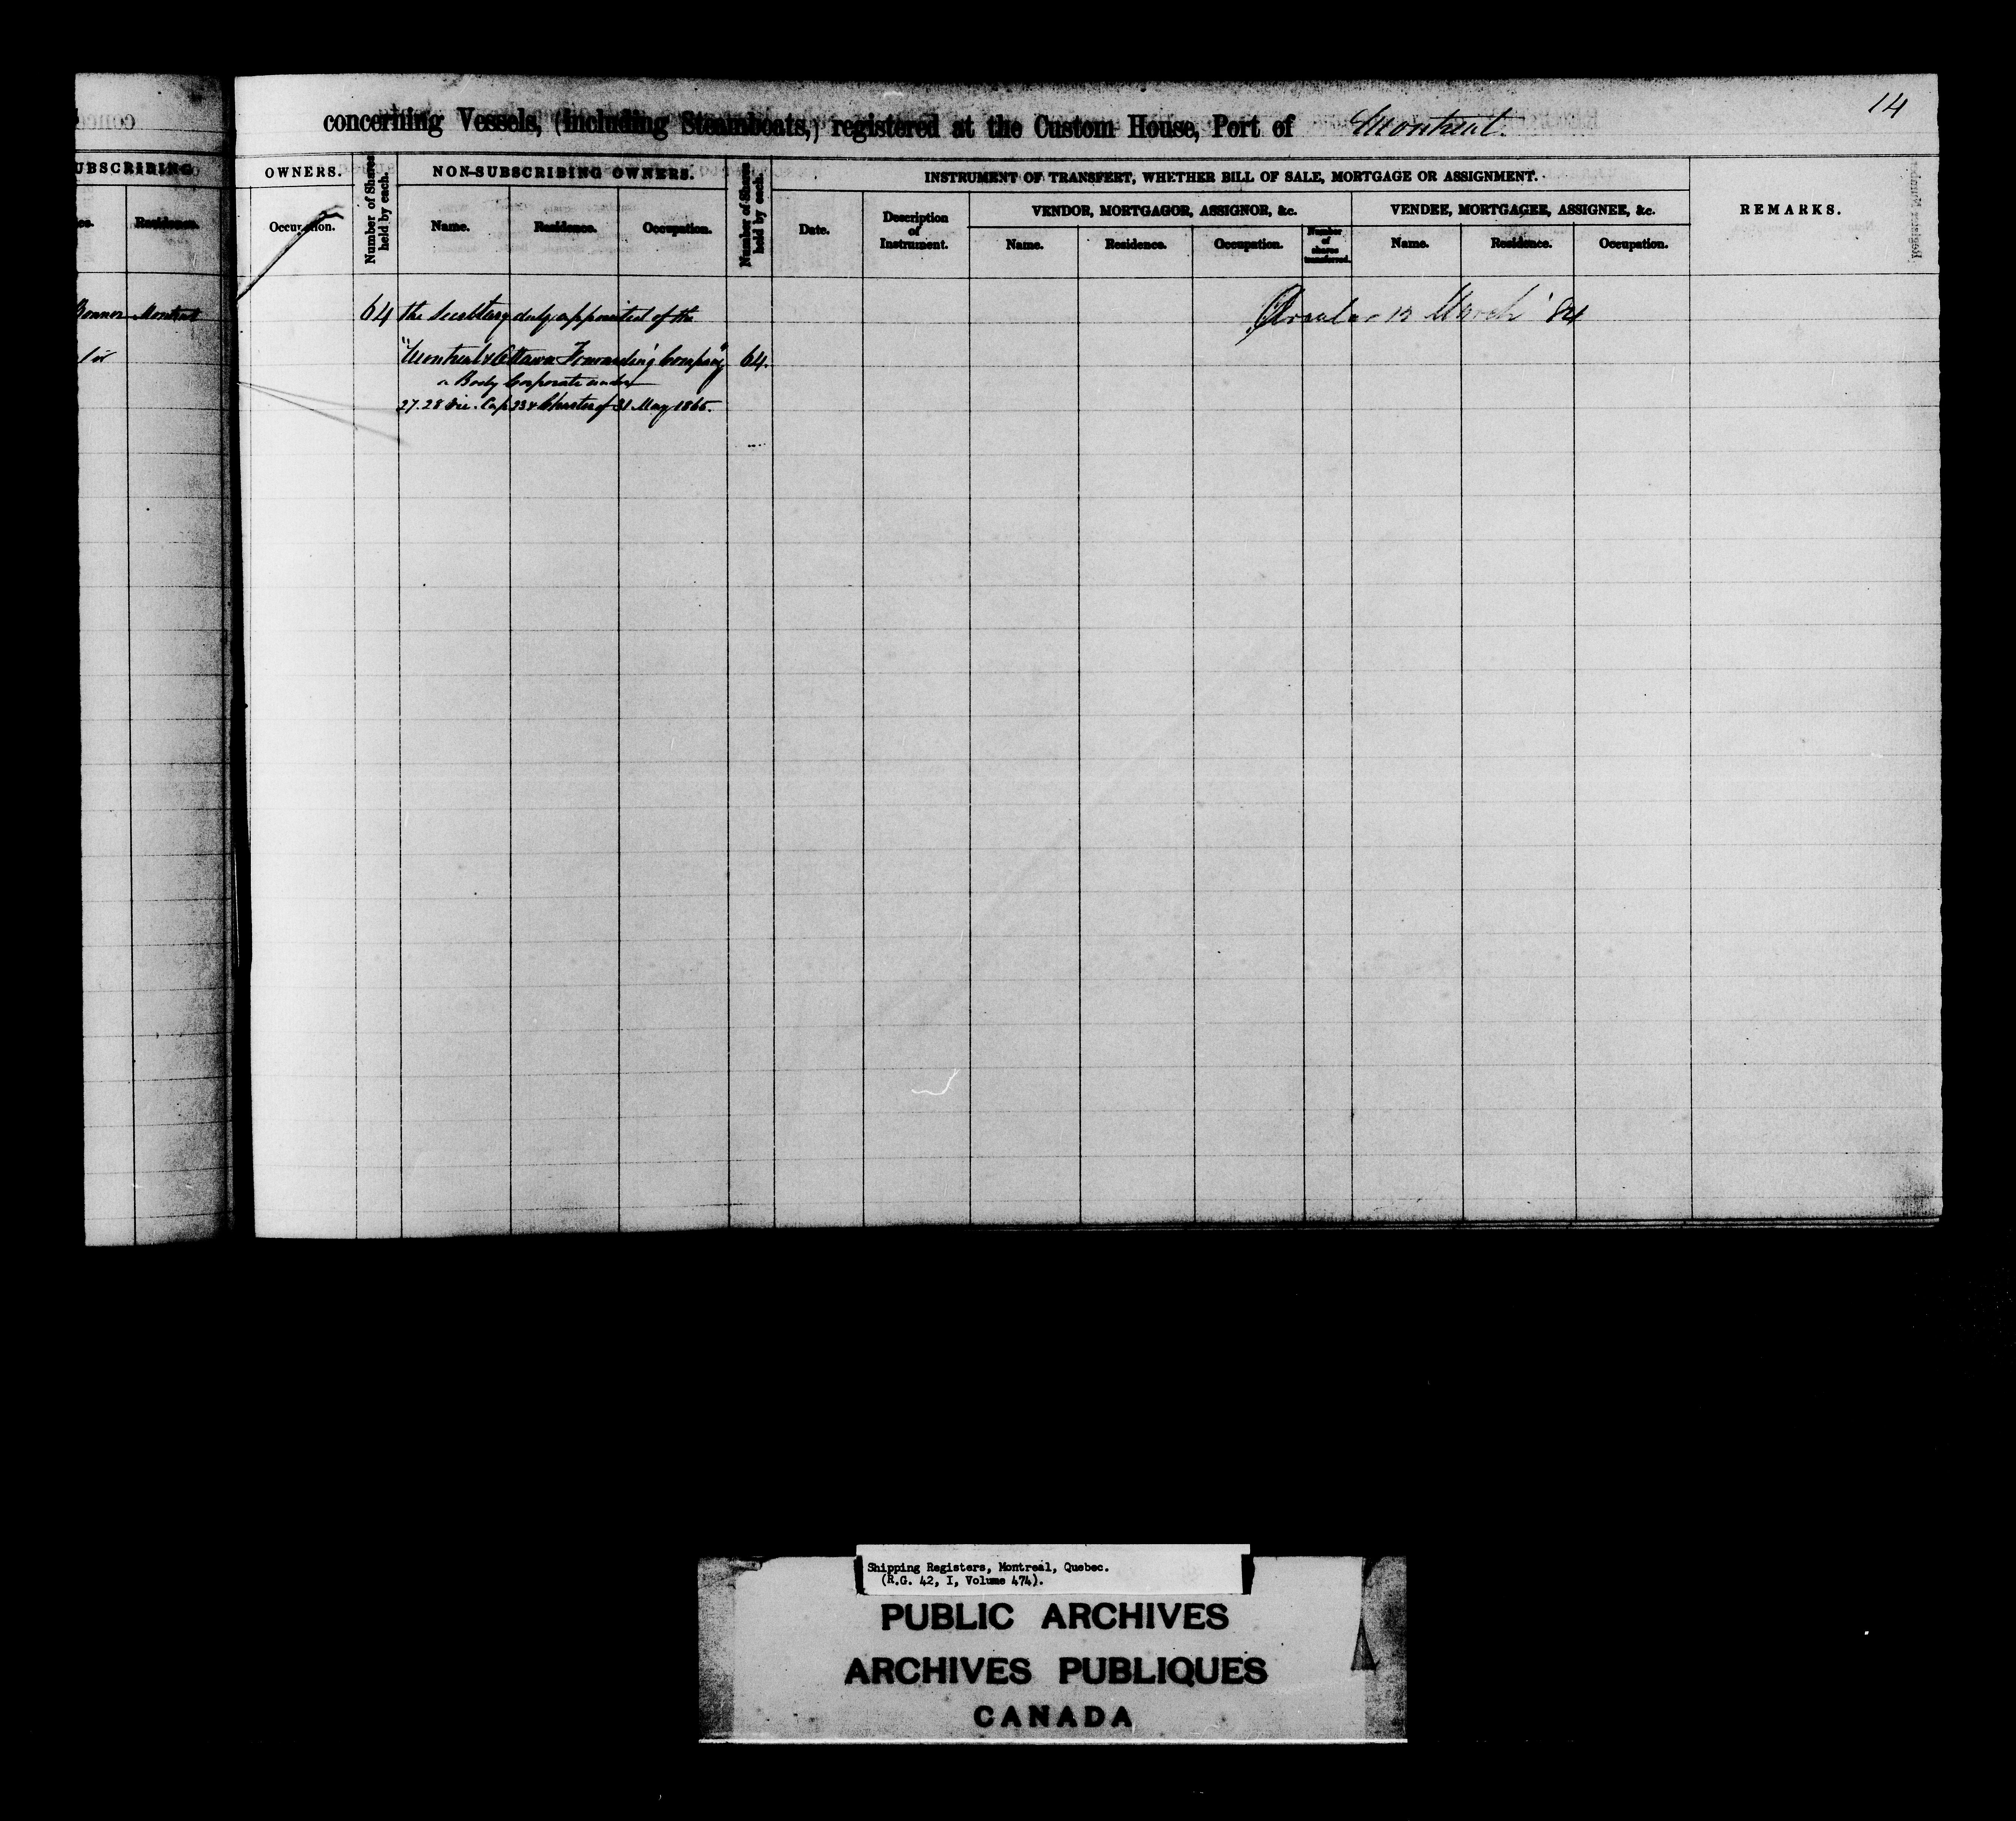 14
concerning Vessels, (including Steamboats,) registered at the Custom House, Port of Montreal.
UBSCRIBING
OWNERS.
Number of Shares held by each.
NON-SUBSCRIBING OWNERS.
Number of Shares held by each.
INSTRUMENT OF TRANSFERT, WHETHER BILL OF SALE, MORTGAGE OR ASSIGNMENT.
REMARKS.
VENDOR, MORTGAGOR, ASSIGNOR, &c.
VENDEE, MORTGAGEE, ASSIGNEE, &c.
ce. Residence. Occupation. Name. Residence. Occupation. Date. Description of Instrument. Name. Residence. Occupation. Number of shares transferred. Name. Residence. Occupation.
Montreal 64 the Secretary duly appointed of the
Circular 13 March '84
"Montreal & Ottawa Forwarding Company" 64.
a Body Corporate under
27.28 Vic. Cap 23 & Charter of 31 May 1865.
Shipping Registers, Montreal, Quebec.
(R.G. 42, I, Volume 474).
PUBLIC ARCHIVES
ARCHIVES PUBLIQUES
CANADA